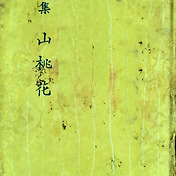 集 山桃花